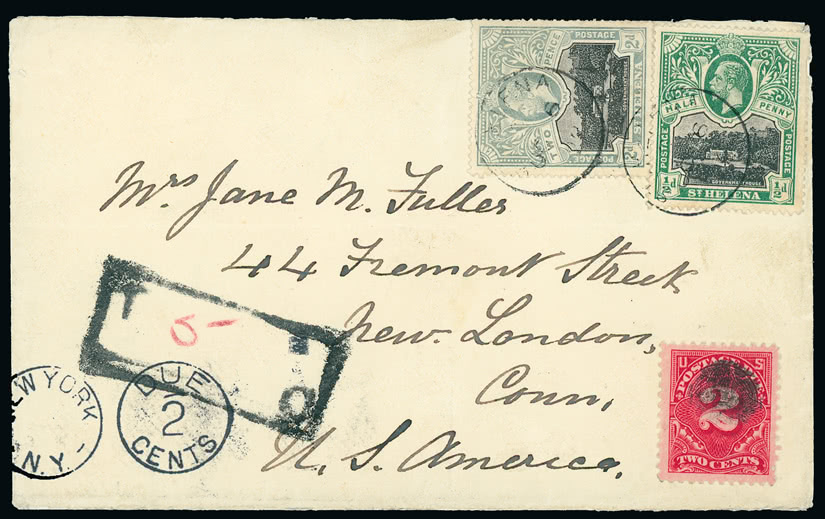 POSTAGE
TWO PENCE
2d
ST HELENA
HALF PENNY
POSTAGE
POSTAGE
½d
½d
GOVERNMENT HOUSE
ST HELENA
Mrs Jane M. Fuller
44 Fremont Street
New London,
Conn,
U. S. America.
T
5-
NEW YORK
N.Y.
DUE
2
CENTS
U S
POSTAGE DUE
2
TWO CENTS